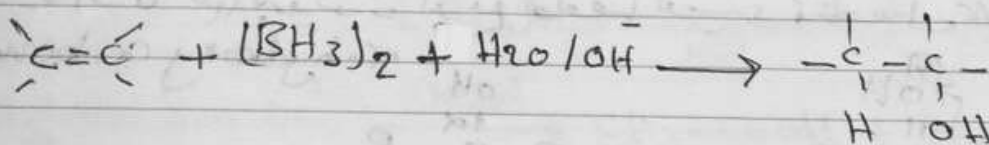 C=C + (BH3)2 + H2O/OH⁻ ⟶ -C-C-
H OH